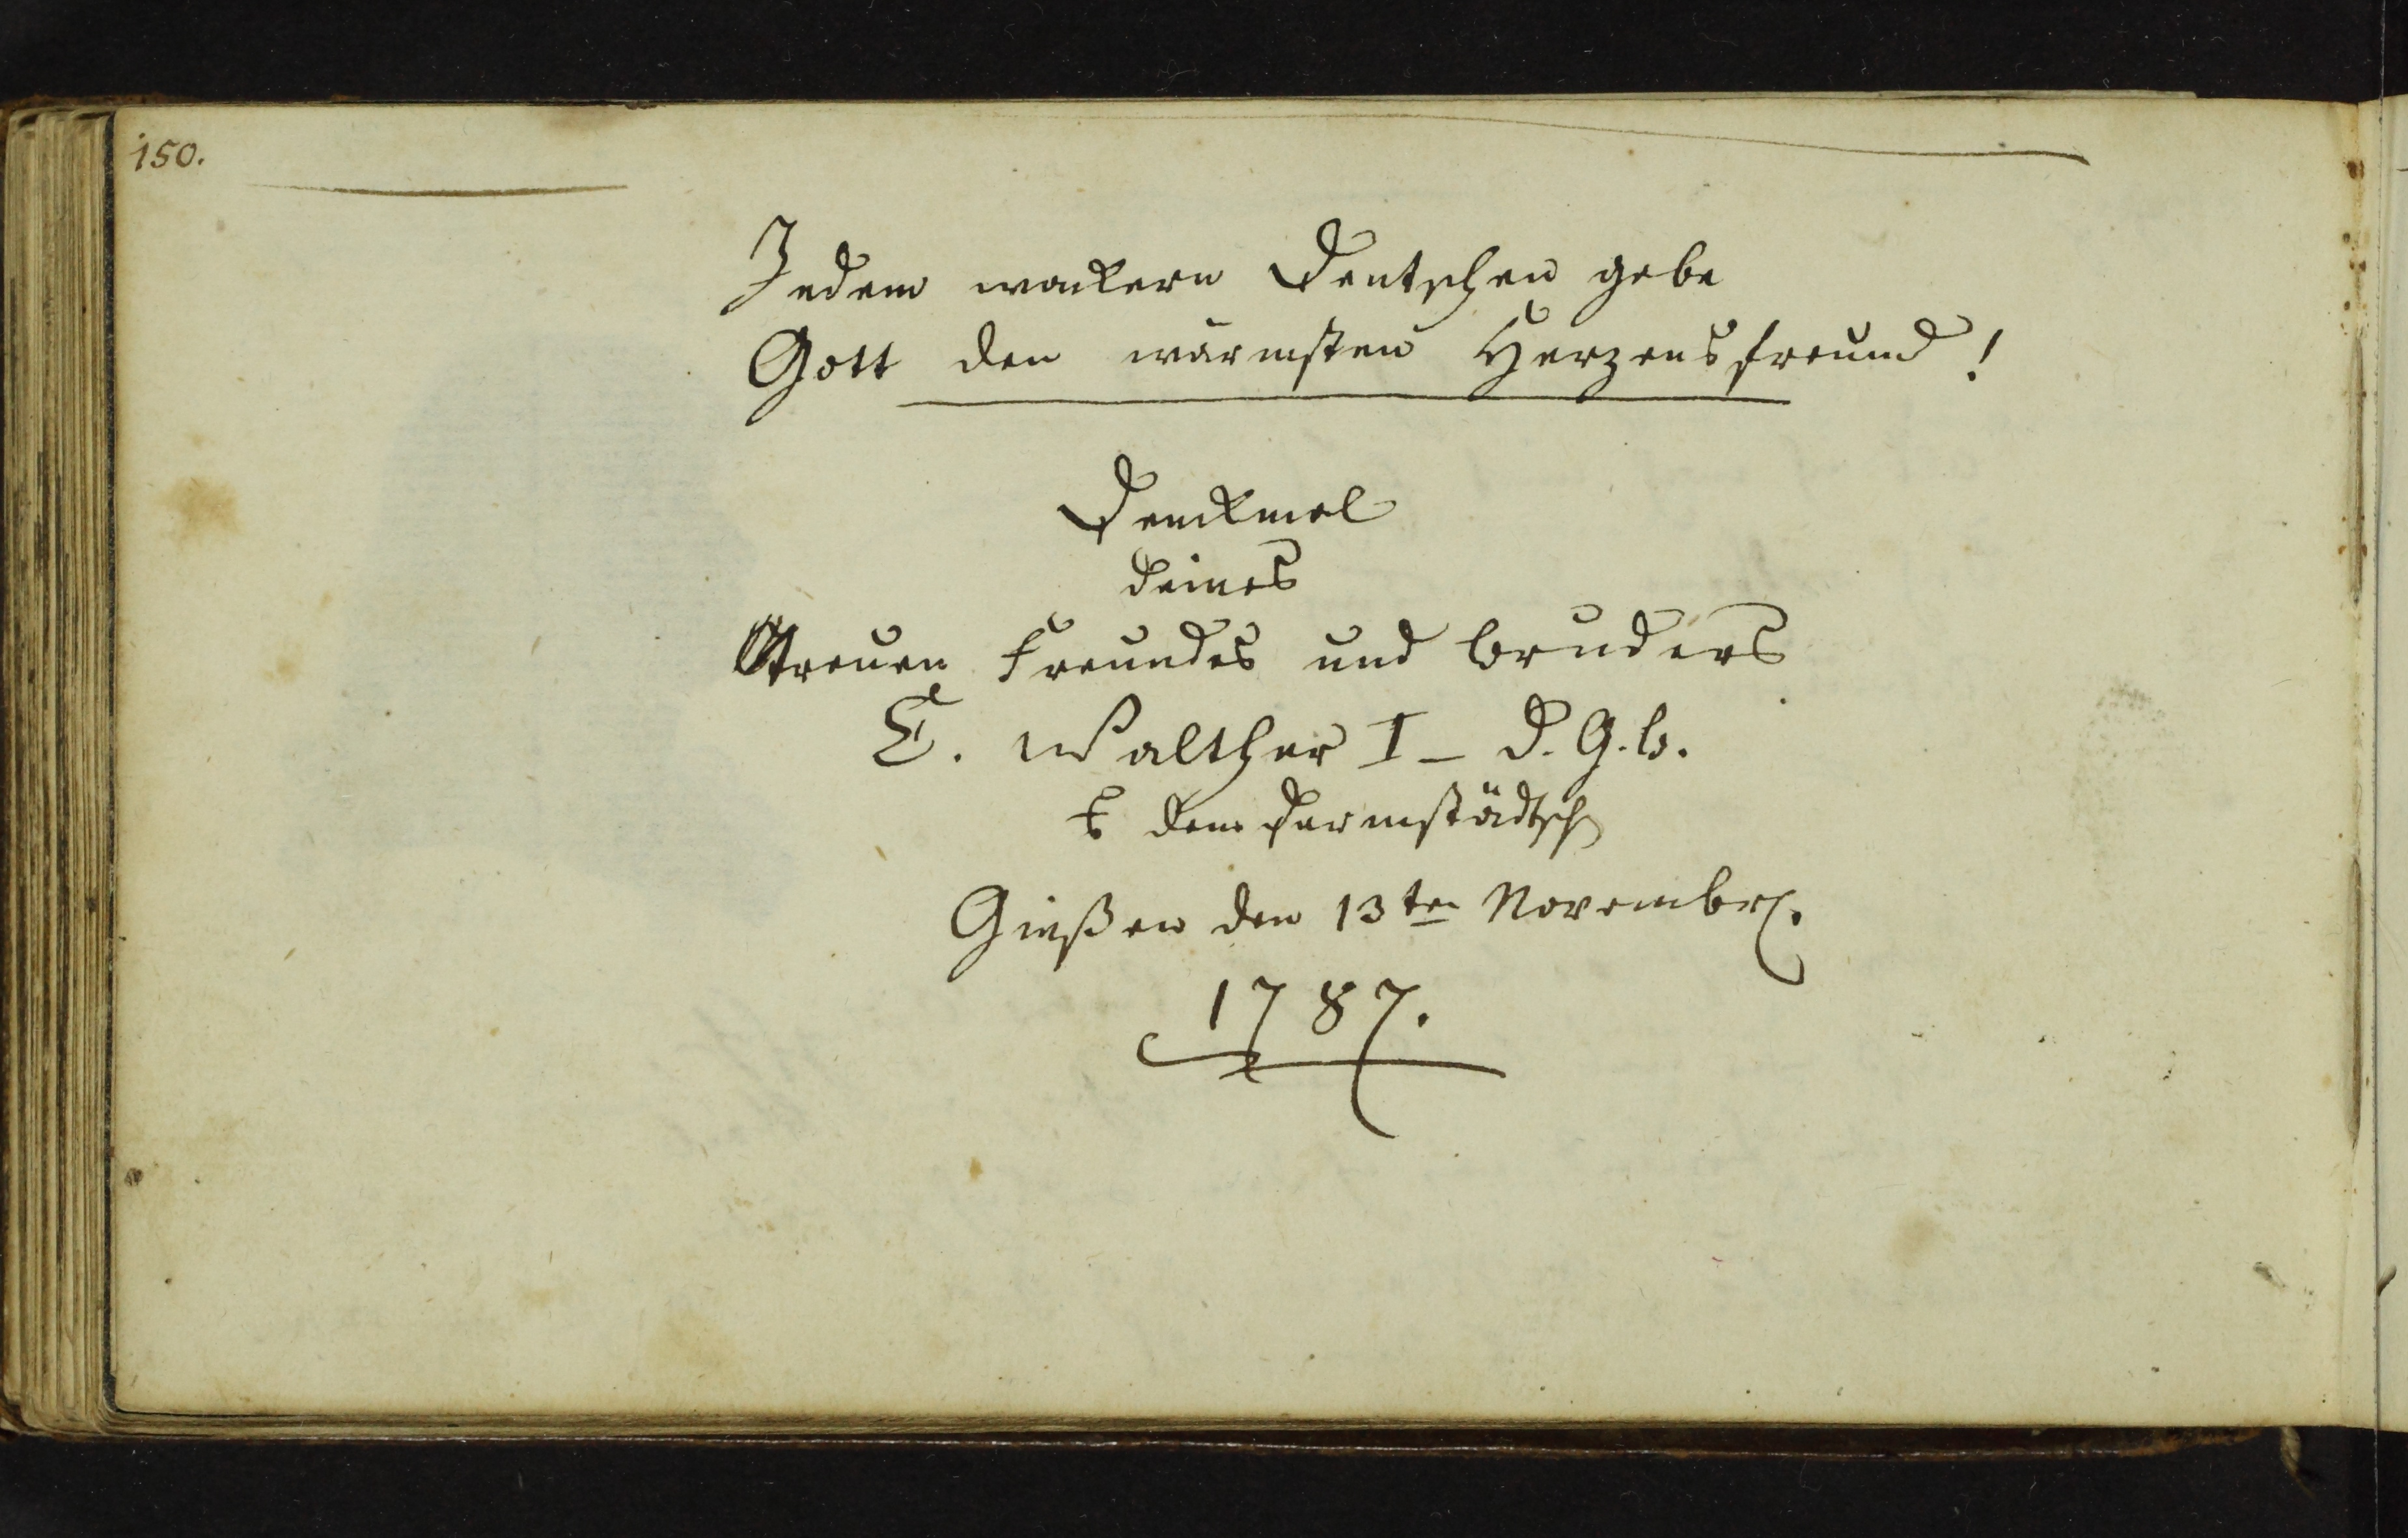 150.
Jedem wackern Deutschen gebe
Gott den wärmsten Herzensfreund!
Denckmal
deines
treuen Freundes und bruders
E. Walther I – D. G. b.
dem Darmstädtsch
Gießen den 13ten Novembr.
1787.